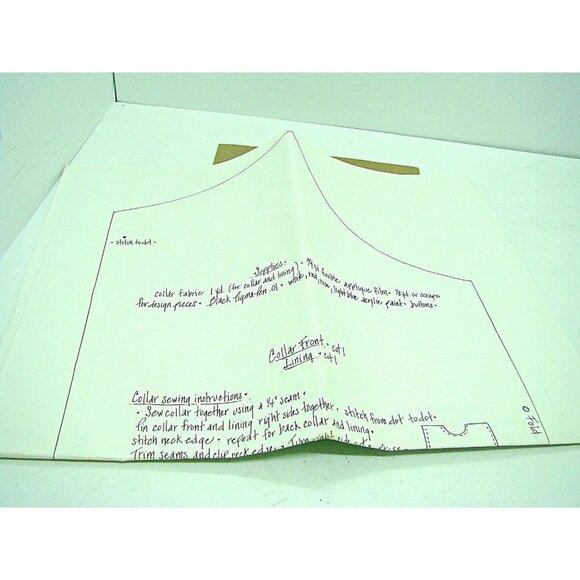 • stitch to dot •
supplies •
¾ yd fusible applique film • ⅛ yd or scraps
collar fabric 1 yd. (for collar and lining) •
for design pieces • Black Pigma Pen .01 • white, red, rose, light blue acrylic paint • buttons •
Collar Front • cut 1
Lining • cut 1
Collar sewing instructions •
• Sew collar together using a ¼" seam •
Pin collar front and lining right sides together • stitch from dot to dot •
stitch neck edge • repeat for back collar and lining •
Trim seams and clip neck edge • Turn right
fold